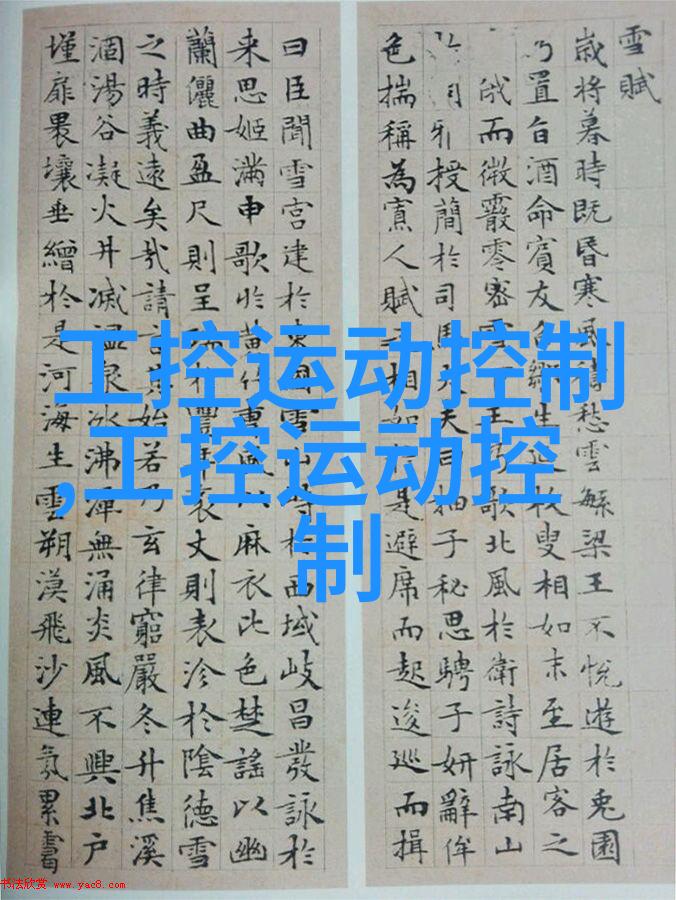 雪賦
歳将暮時既昏寒風積愁雲繁梁王不悅遊於兎園
乃置旨酒命賓友召鄒生延枚叟相如末至居客之
俄而微霰零密雪下王乃歌北風於衛詩詠南山
雅授簡於司馬大夫曰抽子秘思騁子妍辭侔
色揣稱為寡人賦之相如於是避席而起逡巡而揖
曰臣聞雪宮建於東國雪山峙於西域岐昌發詠於
来思姬滿申歌於黄竹曹風以麻衣比色楚謠以幽
蘭儷曲盈尺則呈瑞於豐年袤丈則表沴於陰德雪
之時義遠矣哉請言其始若乃玄律窮嚴冬升焦溪
涸湯谷凝火井滅温泉冰沸潭無涌炎風不興北户
墐扉裸壤垂繒於是河海生雲朔漠飛沙連氛累靄
工控运动控制
,工控运动控
制
书法欣赏 www.yac8.com